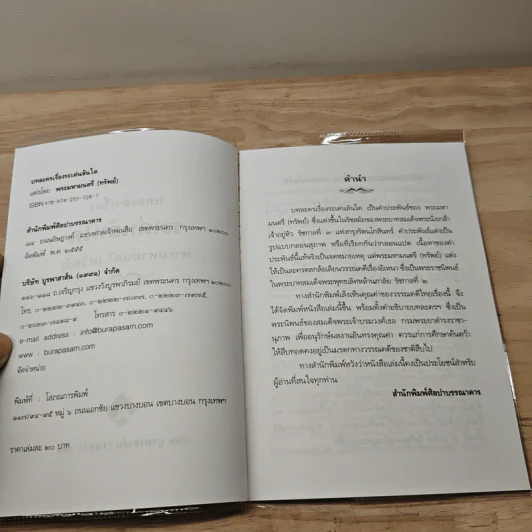 บทละครเรื่องระเด่นลันได
แต่งโดย พระมหามนตรี (ทรัพย์)
ISBN 978-974-255-728-7
สำนักพิมพ์ศิลปาบรรณาคาร
๘๔ ถนนอัษฎางค์ แขวงศาลเจ้าพ่อเสือ เขตพระนคร กรุงเทพฯ ๑๐๒๐๐
จัดพิมพ์ พ.ศ. ๒๕๕๕
บริษัท บูรพาสาส์น (๑๙๙๑) จำกัด
ถ.เจริญกรุง แขวงวังบูรพาภิรมย์ เขตพระนคร กรุงเทพฯ ๑๐๒๐๐
โทร.
โทรสาร
e-mail address : info@burapasarn.com
www : burapasarn.com
จัดจำหน่าย
พิมพ์ที่ : โสภณการพิมพ์
๑๑๗/๓๔-๓๕ หมู่ ๖ ถนนเอกชัย แขวงบางบอน เขตบางบอน กรุงเทพฯ
ราคาเล่มละ ๒๐ บาท
คำนำ
บทละครเรื่องระเด่นลันได เป็นคำประพันธ์ของ พระมหา
มนตรี (ทรัพย์) ซึ่งแต่งขึ้นในรัชสมัยของพระบาทสมเด็จพระนั่งเกล้า
เจ้าอยู่หัว รัชกาลที่ ๓ แห่งกรุงรัตนโกสินทร์ คำประพันธ์แต่งเป็น
รูปแบบกลอนสุภาพ หรือที่เรียกกันว่ากลอนแปด เนื้อหาของคำ
ประพันธ์นี้แท้จริงเป็นจดหมายเหตุ แต่พระมหามนตรี (ทรัพย์) แต่ง
ให้เป็นละครตลกล้อเลียนวรรณคดีเรื่องอิเหนา ซึ่งเป็นพระราชนิพนธ์
ในพระบาทสมเด็จพระพุทธเลิศหล้านภาลัย รัชกาลที่ ๒
ทางสำนักพิมพ์เล็งเห็นคุณค่าของวรรณคดีไทยเรื่องนี้ จึง
ได้จัดพิมพ์หนังสือเล่มนี้ขึ้น พร้อมทั้งคำอธิบายบทละครฯ ซึ่งเป็น
พระนิพนธ์ของสมเด็จพระเจ้าบรมวงศ์เธอ กรมพระยาดำรงราชา-
นุภาพ เพื่ออนุรักษ์ผลงานอันทรงคุณค่า ควรแก่การศึกษาค้นคว้า
ให้สืบทอดคงอยู่เป็นมรดกทางวรรณคดีของชาติสืบไป
ทางสำนักพิมพ์หวังว่าหนังสือเล่มนี้คงเป็นประโยชน์สำหรับ
ผู้อ่านที่สนใจทุกท่าน
สำนักพิมพ์ศิลปาบรรณาคาร